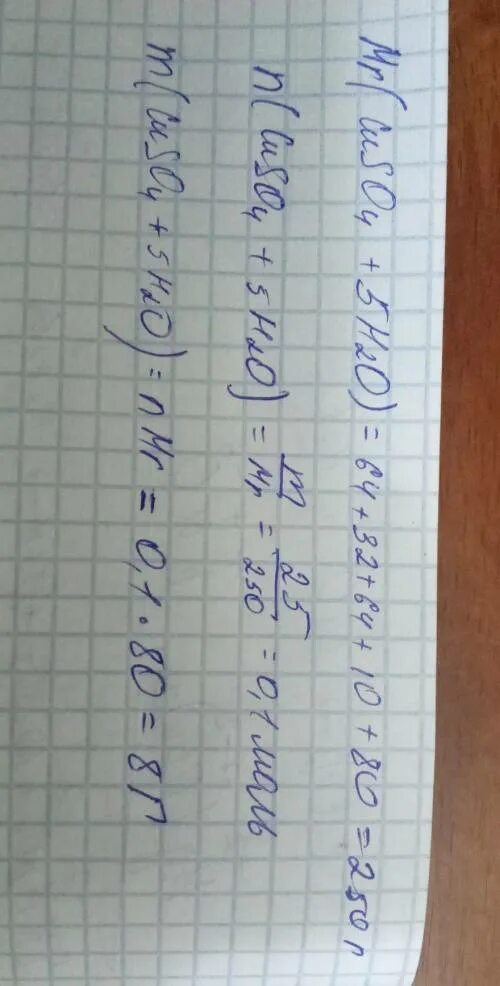 Mr(CuSO₄ + 5H₂O) = 64+32+64+10+80=250 г
n(CuSO₄ + 5H₂O) = m/Mr = 25/250 = 0,1 моль
m(CuSO₄ + 5H₂O) = n Mr = 0,1 · 80 = 8 г